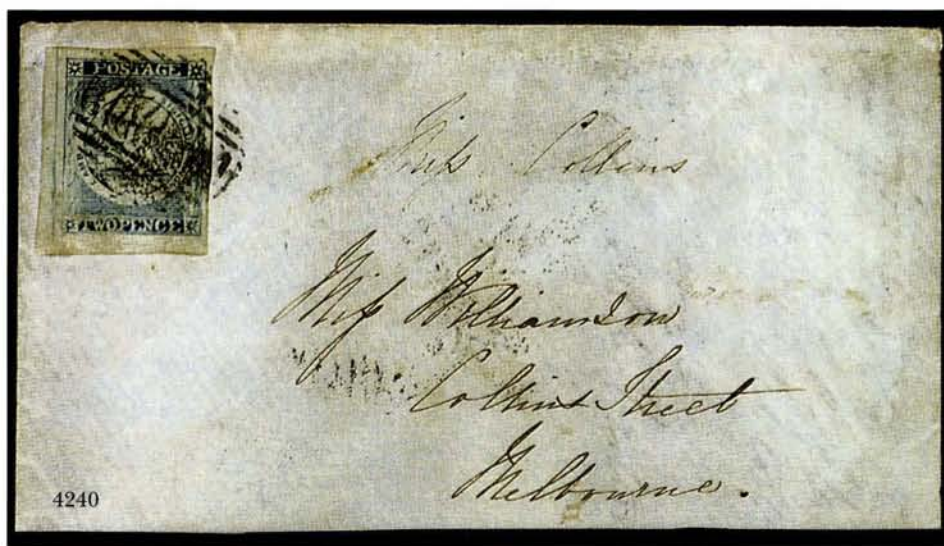 POSTAGE
TWO PENCE
Miss Collins
Miss Williamson
Collins Street
Melbourne.
4240